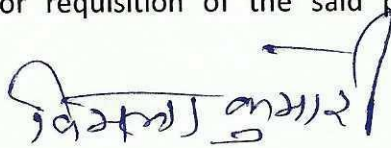 or requisition of the said
विमला कुमारी